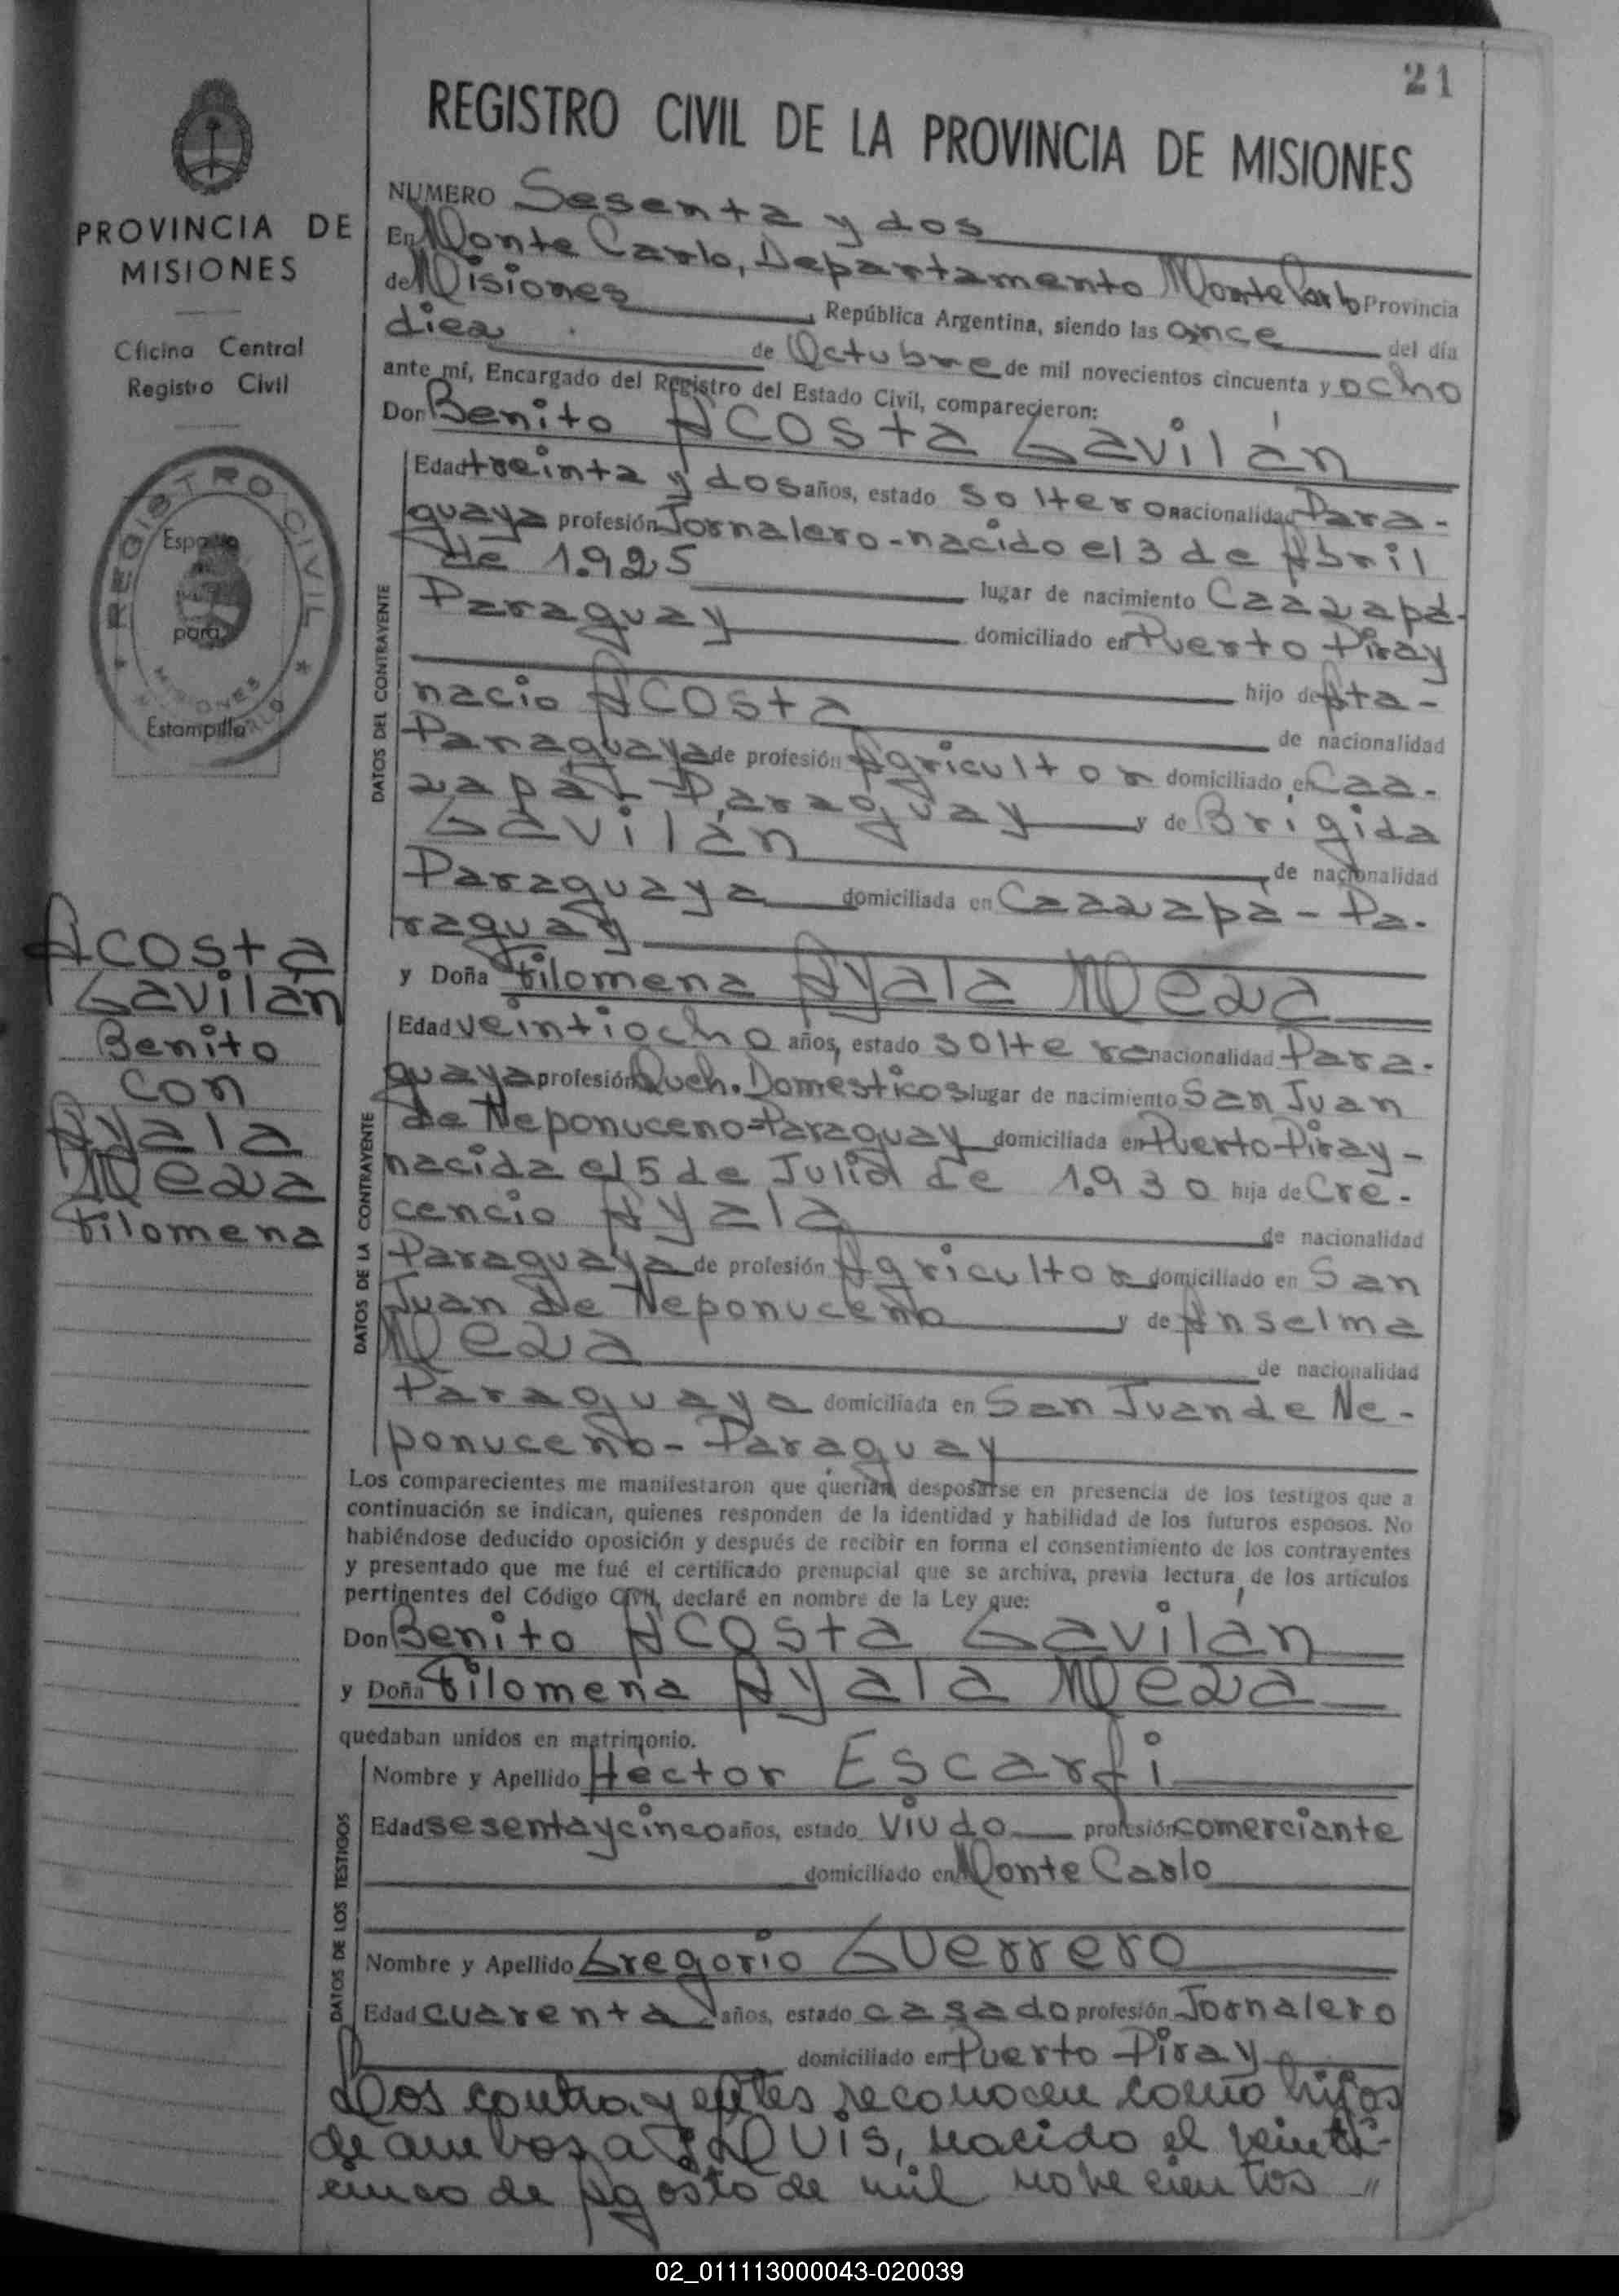 21
REGISTRO CIVIL DE LA PROVINCIA DE MISIONES
PROVINCIA DE
MISIONES
Oficina Central
Registro Civil
REGISTRO CIVIL
Espacio
para
MISIONES
Estampilla
Acosta
Gavilán
Benito
con
Ayala
Meza
Filomena
NUMERO Sesenta y dos
En Monte Carlo, Departamento Monte Carlo Provincia
de Misiones, República Argentina, siendo las once del día
diez de Octubre de mil novecientos cincuenta y ocho
ante mí, Encargado del Registro del Estado Civil, comparecieron:
Don Benito Acosta Gavilán
DATOS DEL CONTRAYENTE
Edad treinta y dos años, estado soltero nacionalidad Para-
guaya profesión Jornalero-nacido el 3 de Abril
de 1.925 lugar de nacimiento Caazapá-
Paraguay domiciliado en Puerto Piray
hijo de Ata-
nacio Acosta de nacionalidad
Paraguaya de profesión Agricultor domiciliado en Caa-
zapá-Paraguay y de Brígida
Gavilán de nacionalidad
Paraguaya domiciliada en Caazapá-Pa-
raguay
y Doña Filomena Ayala Meza
DATOS DE LA CONTRAYENTE
Edad veintiocho años, estado soltera nacionalidad Para-
guaya profesión Queh. Domesticos lugar de nacimiento San Juan
de Neponuceno-Paraguay domiciliada en Puerto Piray-
nacida el 5 de Julio de 1.930 hija de Cre-
cencio Ayala de nacionalidad
Paraguaya de profesión Agricultor domiciliado en San
Juan de Neponuceno y de Anselma
Meza de nacionalidad
Paraguaya domiciliada en San Juan de Ne-
ponuceno-Paraguay
Los comparecientes me manifestaron que querían desposarse en presencia de los testigos que a
continuación se indican, quienes responden de la identidad y habilidad de los futuros esposos. No
habiéndose deducido oposición y después de recibir en forma el consentimiento de los contrayentes
y presentado que me fué el certificado prenupcial que se archiva, previa lectura de los artículos
pertinentes del Código Civil, declaré en nombre de la Ley que:
Don Benito Acosta Gavilán
y Doña Filomena Ayala Meza
quedaban unidos en matrimonio.
DATOS DE LOS TESTIGOS
Nombre y Apellido Hector Escarfi
Edad sesentaycinco años, estado viudo profesión comerciante
domiciliado en Monte Carlo
Nombre y Apellido Gregorio Guerrero
Edad cuarenta años, estado casado profesión Jornalero
domiciliado en Puerto Piray
Los contrayentes reconocen como hijos
de ambos, a LUIS, nacido el veinti-
cinco de Agosto de mil novecientos "
02_011113000043-020039